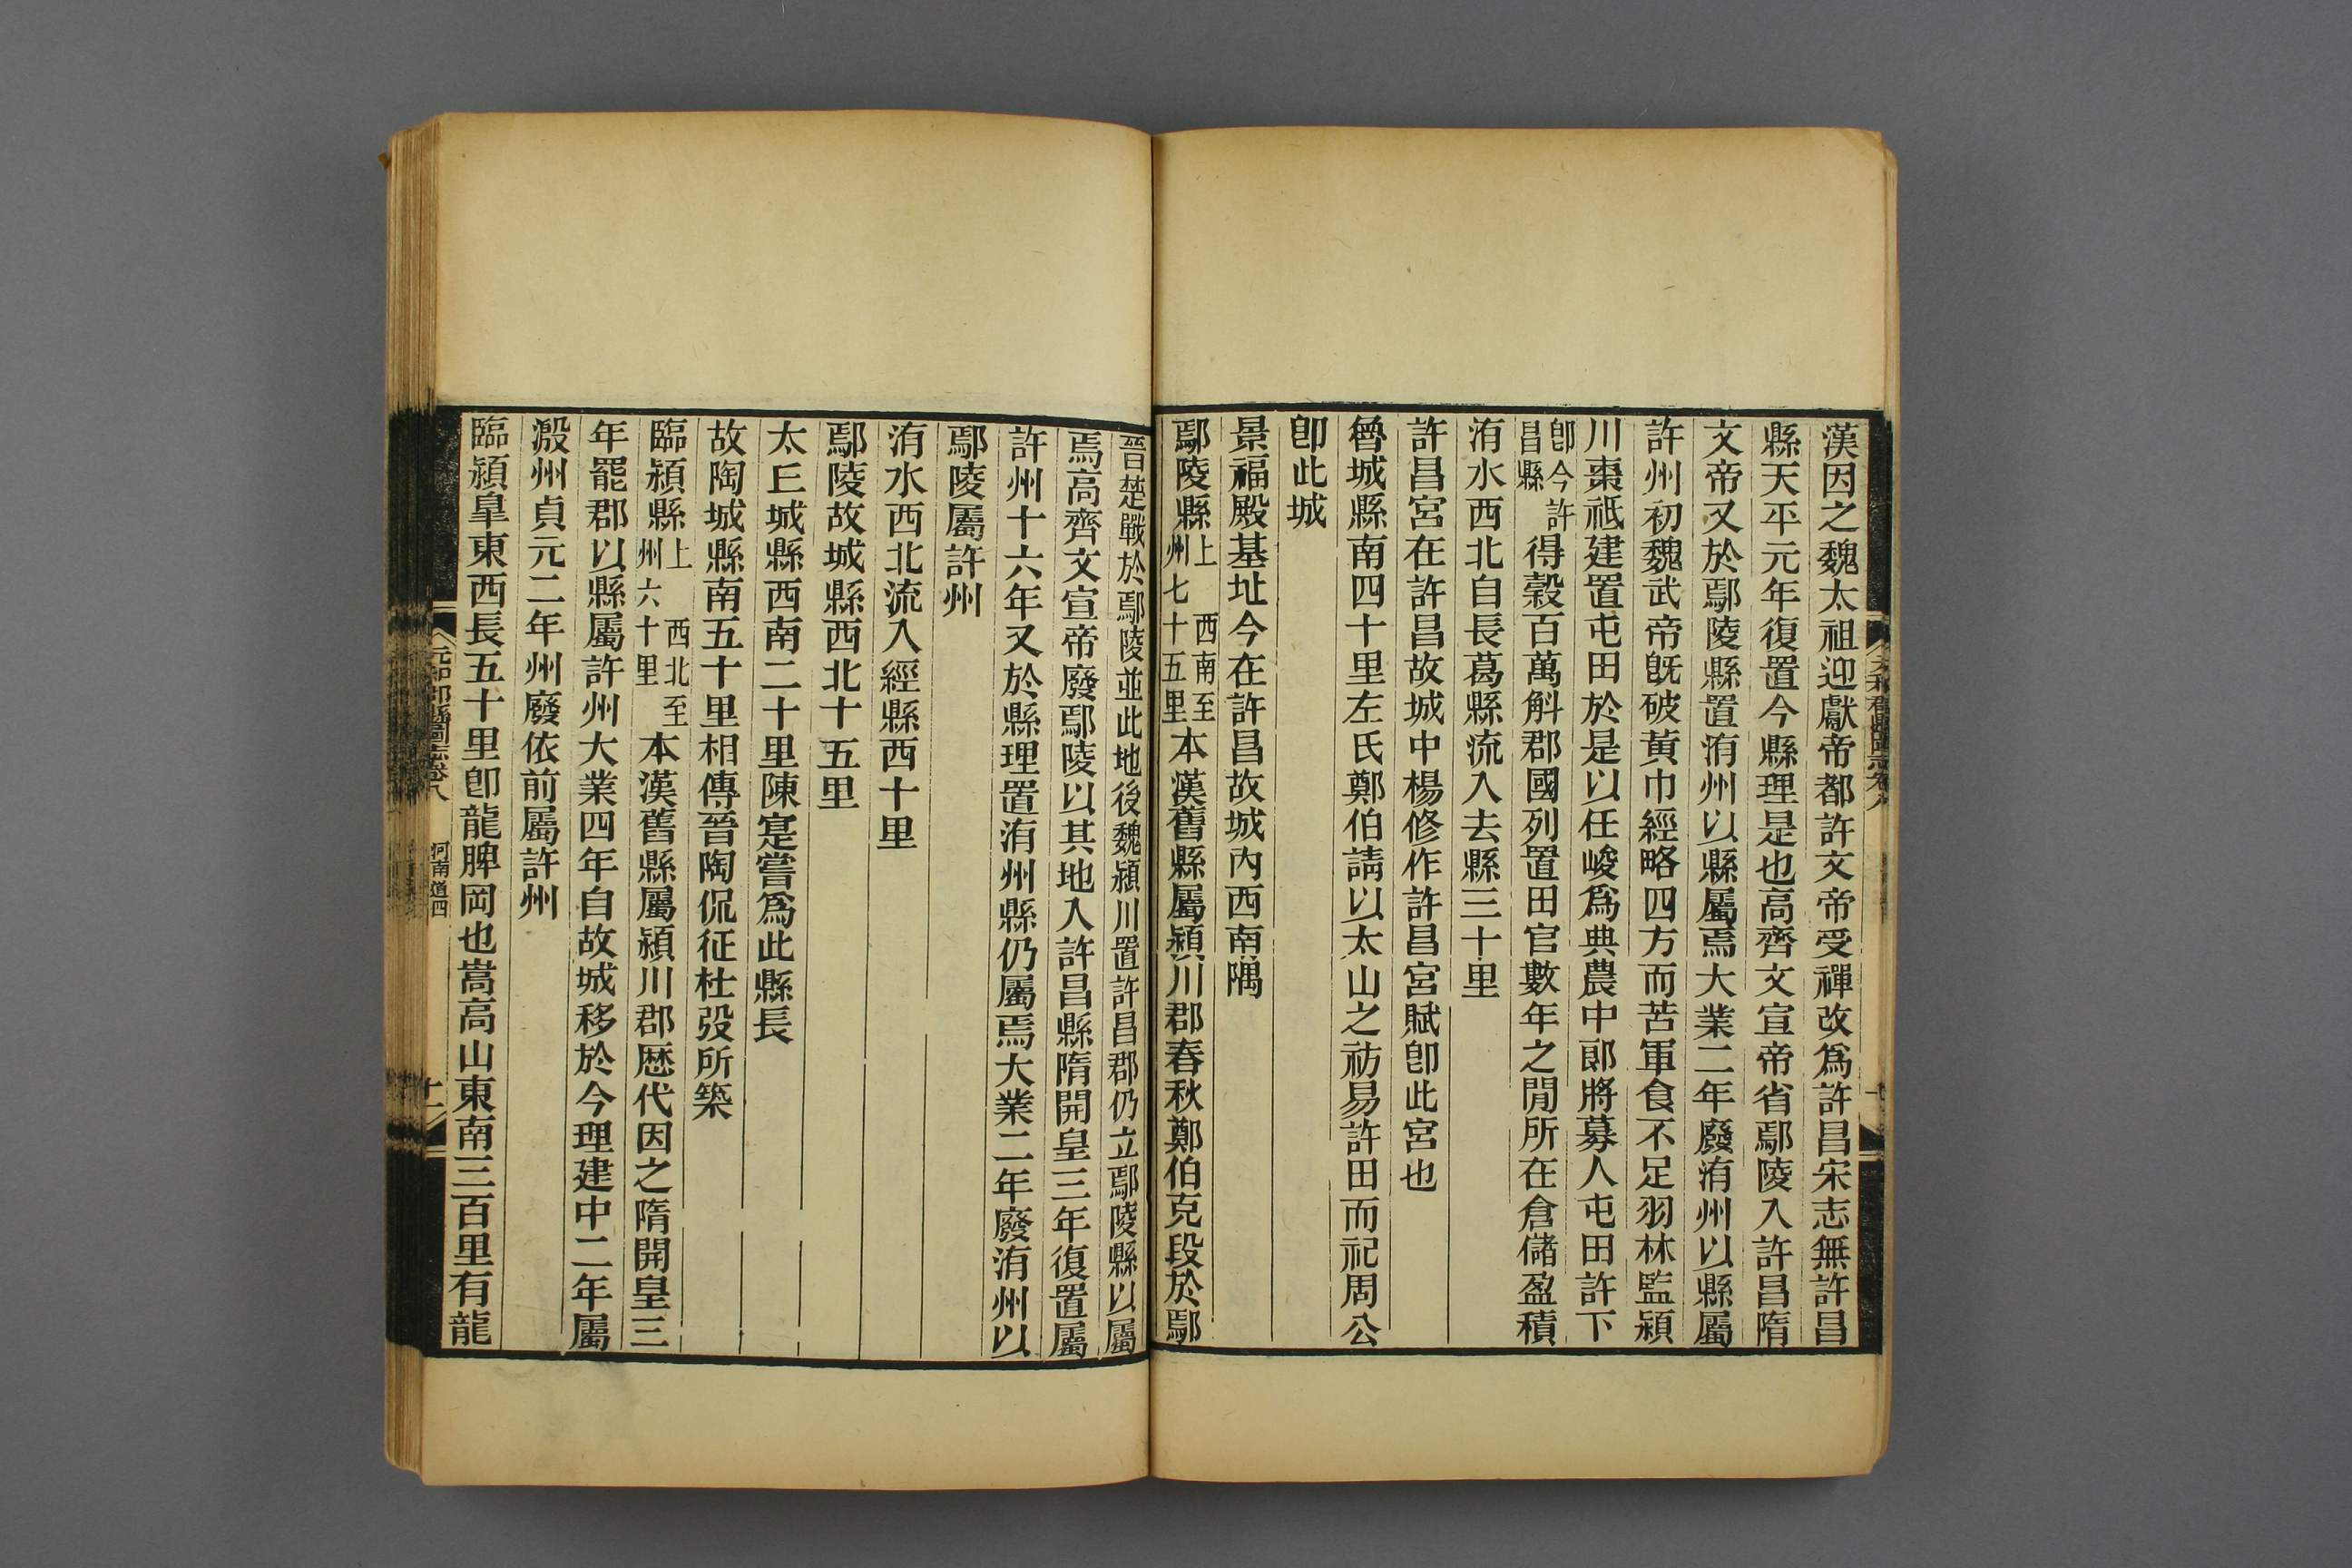 漢因之魏太祖迎獻帝都許文帝受禪改爲許昌宋志無許昌
縣天平元年復置今縣理是也高齊文宣帝省鄢陵入許昌隋
文帝又於鄢陵縣置洧州以縣屬焉大業二年廢洧州以縣屬
許州初魏武帝旣破黃巾經略四方而苦軍食不足羽林監潁
川棗祗建置屯田於是以任峻爲典農中郎將募人屯田許下
卽今許
昌縣
得穀百萬斛郡國列置田官數年之閒所在倉儲盈積
洧水西北自長葛縣流入去縣三十里
許昌宮在許昌故城中楊修作許昌宮賦卽此宮也
魯城縣南四十里左氏鄭伯請以太山之祊易許田而祀周公
卽此城
景福殿基址今在許昌故城內西南隅
鄢陵縣上 西南至
州七十五里
本漢舊縣屬潁川郡春秋鄭伯克段於鄢
晉楚戰於鄢陵並此地後魏潁川置許昌郡仍立鄢陵縣以屬
焉高齊文宣帝廢鄢陵以其地入許昌縣隋開皇三年復置屬
許州十六年又於縣理置洧州縣仍屬焉大業二年廢洧州以
鄢陵屬許州
洧水西北流入經縣西十里
鄢陵故城縣西北十五里
太丘城縣西南二十里陳寔嘗爲此縣長
故陶城縣南五十里相傳晉陶侃征杜弢所築
臨潁縣上 西北至
州六十里
本漢舊縣屬潁川郡歷代因之隋開皇三
年罷郡以縣屬許州大業四年自故城移於今理建中二年屬
溵州貞元二年州廢依前屬許州
臨潁皐東西長五十里卽龍脾岡也嵩高山東南三百里有龍
元和郡縣圖志卷八 河南道四 十一